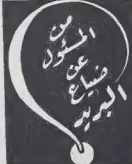 من
المسئول
عن
ضياع
البريد